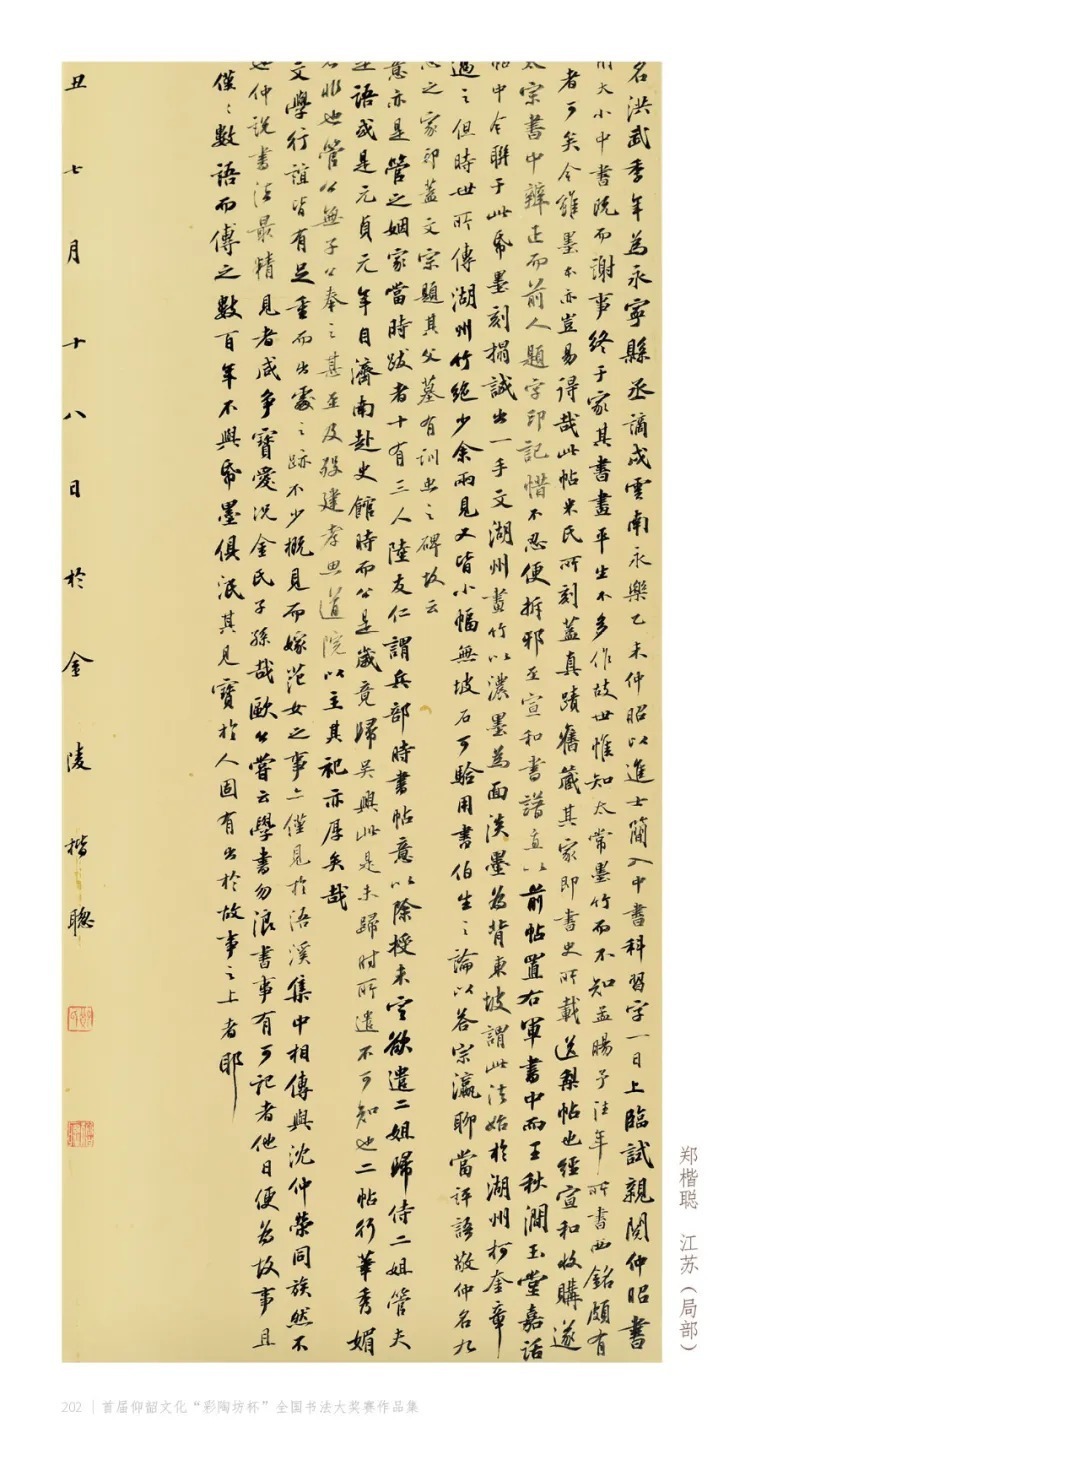 名洪武季年為永寧縣丞謫戍雲南永樂乙未仲昭以進士簡入中書科習字一日上臨試親閱仲昭書
大小中書既而謝事終于家其書畫平生不多作故世惟知太常墨竹而不知孟暘予往年所書西銘頗有
者可矣今雖墨本亦豈易得哉此帖米氏所刻蓋真蹟舊藏其家即書史所載送梨帖也經宣和收購遂
太宗書中辯正而前人題字印記惜不忍便拆邪至宣和書譜直以前帖置右軍書中而王秋澗玉堂嘉話
帖中令聯于此帋墨刻搨誠出一手文湖州畫竹以濃墨為面淡墨為背東坡謂此法始於湖州柯奎章
過之但時世所傳湖州竹絕少余兩見又皆小幅無坡石可驗用書伯生之論以答宗瀛聊當評語敬仲名九
之家卯蓋文宗題其父墓有訓忠之碑故云
意亦是管之姻家當時跋者十有三人陸友仁謂兵部時書帖意以除授未定欲遣二姐歸侍二姐管夫
語或是元貞元年自濟南赴史館時而公是歲竟歸吳興此是未歸時所遣不可知也二帖行華秀媚
非也管公無子公奉之甚至及歿建孝思道院以主其祀亦厚矣哉
文學行誼皆有足重而出處之跡不少概見而嫁范女之事亦僅見於浯溪集中相傳與沈仲榮同族然不
也仲說書法最精見者咸爭寶愛況金氏子孫哉歐公嘗云學書勿浪書事有可記者他日便為故事且
僅僅數語而傳之數百年不與帋墨俱泯其見寶於人固有出於故事之上者耶
丑七月十八日於金陵楷聰
郑楷聪 江苏（局部）
202 | 首届仰韶文化“彩陶坊杯”全国书法大奖赛作品集